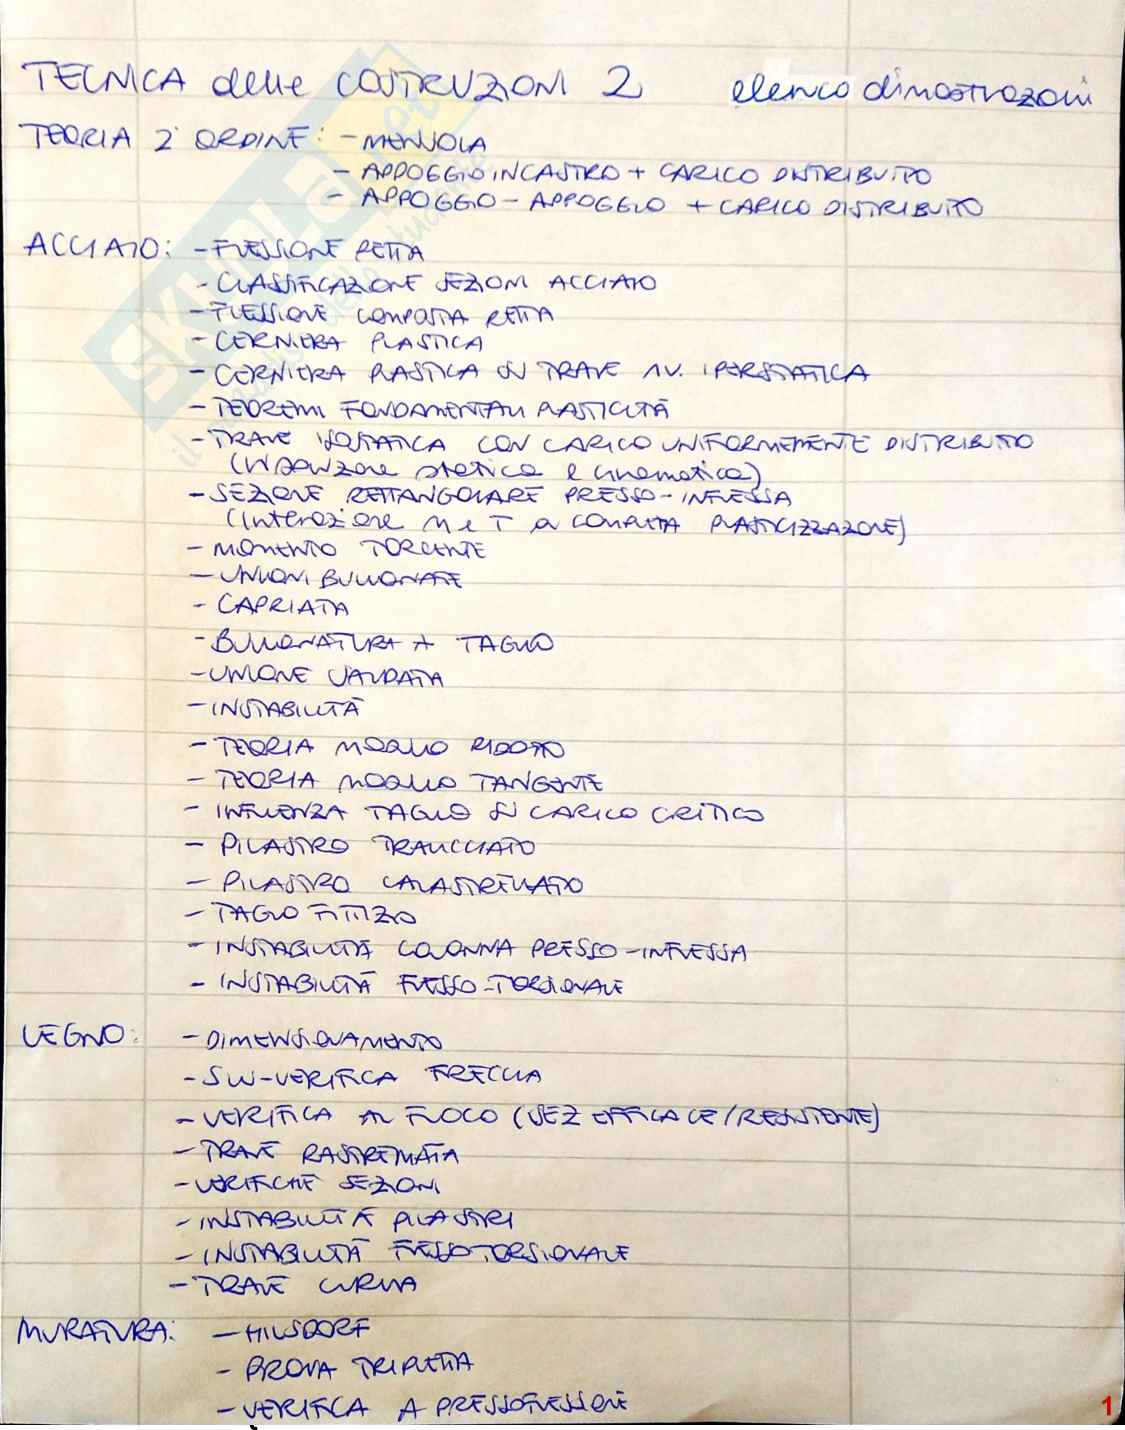 TECNICA delle COSTRUZIONI 2 elenco dimostrazioni
TEORIA 2° ORDINE: - MENSOLA
- APPOGGIO INCASTRO + CARICO DISTRIBUITO
- APPOGGIO - APPOGGIO + CARICO DISTRIBUITO
ACCIAIO: - FLESSIONE RETTA
- CLASSIFICAZIONE SEZIONI ACCIAIO
- FLESSIONE COMPOSTA RETTA
- CERNIERA PLASTICA
- CERNIERA PLASTICA SU TRAVE 1V. IPERSTATICA
- TEOREMI FONDAMENTALI PLASTICITÀ
- TRAVE ISOSTATICA CON CARICO UNIFORMEMENTE DISTRIBUITO
(risoluzione statica e cinematica)
- SEZIONE RETTANGOLARE PRESSO-INFLESSA
(interazione M e T a COMPLETA PLASTICIZZAZIONE)
- MOMENTO TORCENTE
- UNIONI BULLONATE
- CAPRIATA
- BULLONATURA A TAGLIO
- UNIONE SALDATA
- INSTABILITÀ
- TEORIA MODULO RIDOTTO
- TEORIA MODULO TANGENTE
- INFLUENZA TAGLIO SU CARICO CRITICO
- PILASTRO TRALICCIATO
- PILASTRO CALASTRELLATO
- TAGLIO FITTIZIO
- INSTABILITÀ COLONNA PRESSO-INFLESSA
- INSTABILITÀ FLESSO-TORSIONALE
LEGNO: - DIMENSIONAMENTO
- SLU-VERIFICA FRECCIA
- VERIFICA AL FUOCO (SEZ EFFICACE/RESISTENTE)
- TRAVE RASTREMATA
- VERIFICHE SEZIONI
- INSTABILITÀ PILASTRI
- INSTABILITÀ FLESSOTORSIONALE
- TRAVE CURVA
MURATURA: - HILSDORF
- PROVA TRIPLETTA
- VERIFICA A PRESSOFLESSIONE
1